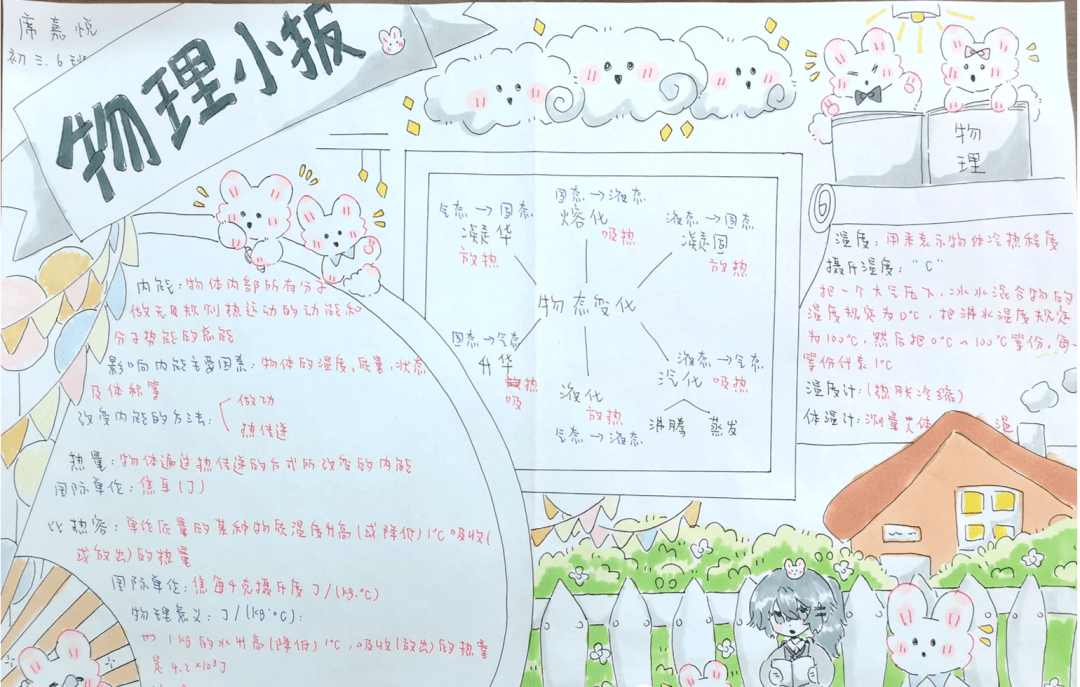 席嘉悦
初三.6班
物理小报
物理
内能:物体内部所有分子
做无规则热运动的动能和
分子势能的总能
影响内能主要因素:物体的温度,质量,状态
及体积等
改变内能的方法:
做功
热传递
热量:物体通过热传递的方式所改变的内能
国际单位:焦耳(J)
比热容:单位质量的某种物质温度升高(或降低)1℃吸收(
或放出)的热量
国际单位:焦每千克摄升度 J/(kg·℃)
物理意义:J/(kg·℃):
1kg的水升高(降低)1℃,吸收(放出)的热量
是4.2×10³J
气态→固态
凝华
放热
固态→液态
熔化
吸热
液态→固态
凝固
放热
物态变化
固态→气态
升华
热
吸
液化
放热
气态→液态
液态→气态
汽化 吸热
沸腾 蒸发
温度:用来表示物体冷热程度
摄升温度:"C"
把一个大气压下,冰水混合物的
温度规定为0℃,把沸水温度规定
为100℃,然后把0℃~100℃等份,每一
等份代表1℃
温度计:(热胀冷缩)
体温计:测量 体 温